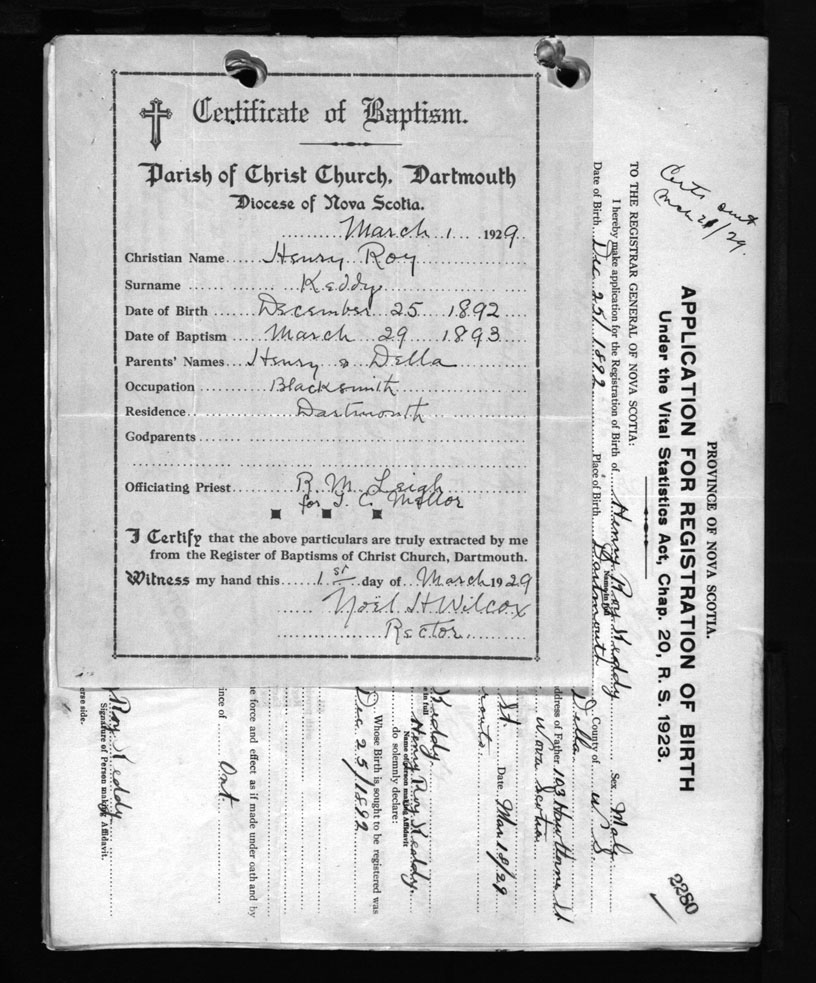 Certificate of Baptism.
Parish of Christ Church, Dartmouth
Diocese of Nova Scotia.
March 1 1929
Christian Name Henry Roy
Surname Keddy
Date of Birth December 25 1892
Date of Baptism March 29 1893
Parents' Names Henry & Della
Occupation Blacksmith
Residence Dartmouth
Godparents
Officiating Priest R. M. Leigh
for T. C. Mellor
I Certify that the above particulars are truly extracted by me
from the Register of Baptisms of Christ Church, Dartmouth.
Witness my hand this 1st day of March 1929
Noël H Wilcox
Rector
PROVINCE OF NOVA SCOTIA.
APPLICATION FOR REGISTRATION OF BIRTH
Under the Vital Statistics Act, Chap. 20, R. S. 1923.
2280
Certs sent
Mch 21/29.
TO THE REGISTRAR GENERAL OF NOVA SCOTIA:
I hereby make application for the Registration of Birth of Henry Roy Keddy Sex Male
Name in full
Date of Birth Dec 25/1892 Place of Birth Dartmouth County of
Della
address of Father 193 Hawthorne St
Nova Scotia
St. Date Mar 18/29
Keddy
Henry Roy Keddy
Name of person making Affidavit
do solemnly declare:
Whose Birth is sought to be registered was
Dec 25/1892
force and effect as if made under oath and by
ince of Ont.
Roy Keddy
Signature of Person making Affidavit.
erse side.